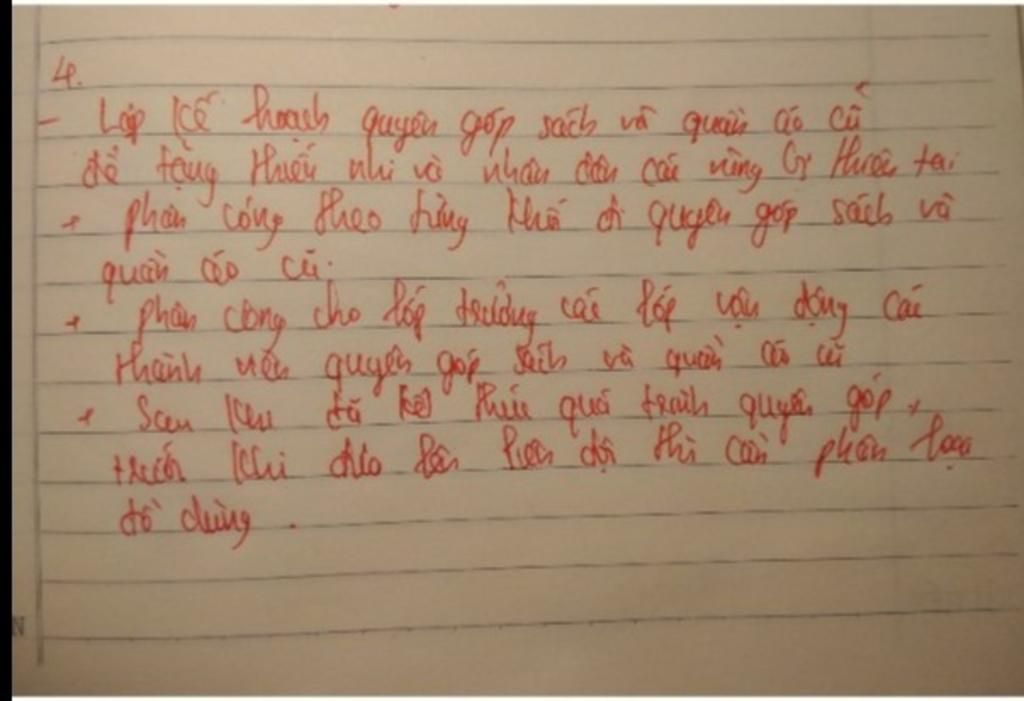 4.
- Lập kế hoạch quyên góp sách và quần áo cũ
để tặng thiếu nhi và nhân dân các vùng bị thiên tai
+ phân công theo từng khối đi quyên góp sách và
quần áo cũ.
+ phân công cho lớp trưởng các lớp vận động các
thành viên quyên góp sách và quần áo cũ
+ Sau khi đã kết thúc quá trình quyên góp,
trước khi đưa lên liên đội thì cần phân loại
đồ dùng.
N